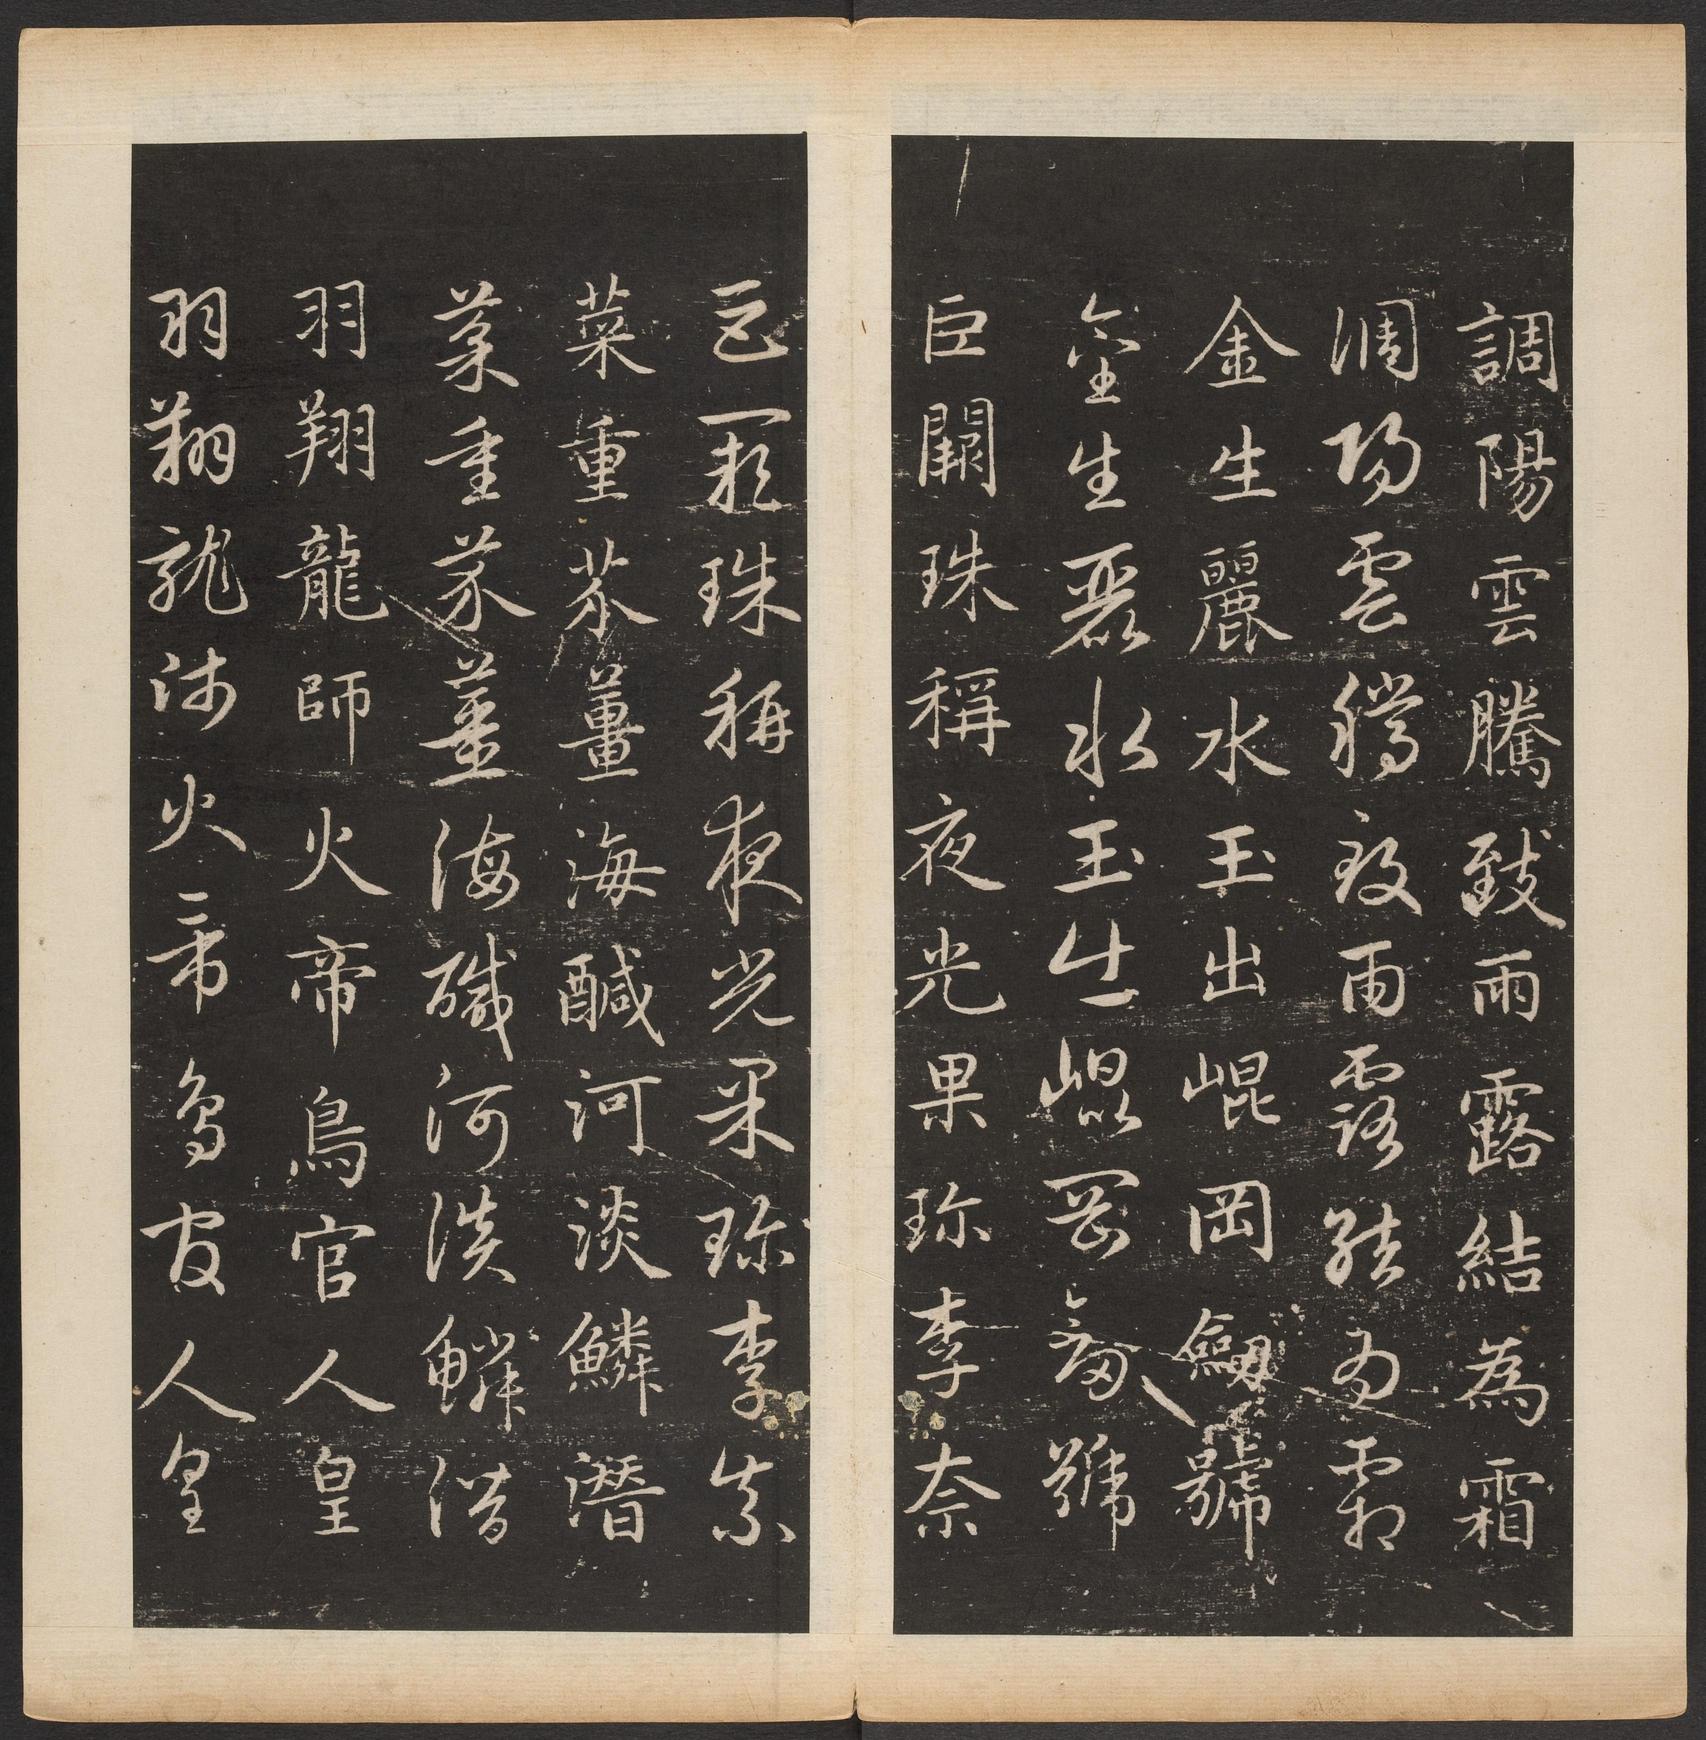 調陽雲騰致雨露結為霜
調陽雲騰致雨露結為霜
金生麗水玉出崐岡劔號
金生麗水玉出崐岡劔號
巨闕珠稱夜光果珎李柰
巨闕珠稱夜光果珎李柰
菜重芥薑海醎河淡鱗潛
菜重芥薑海醎河淡鱗潛
羽翔龍師火帝鳥官人皇
羽翔龍師火帝鳥官人皇